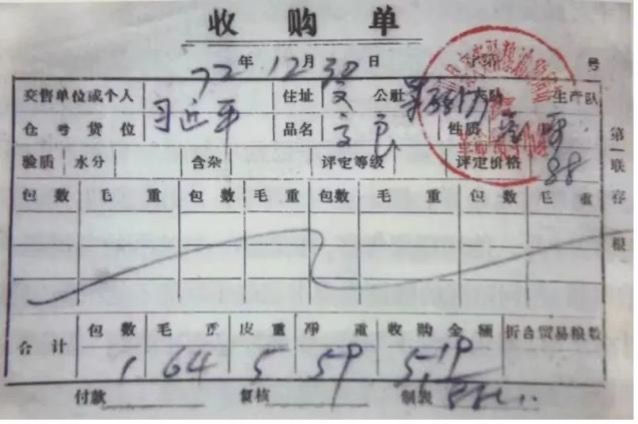 收购单
72年12月30日 号
交售单位或个人 习近平 住址 文 公社 产队 生产队
仓号货位 品名 性质
验质 水分 含杂 评定等级 评定价格 88
包数 毛重 包数 毛重 包数 毛重 包数 毛重
合计 包数 毛重 皮重 净重 收购金额 折合贸易粮数
1 64 5 59 5.19
付款 复核 制表
第一联存根